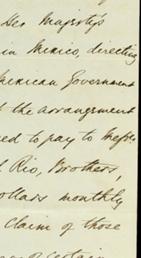 Her Majesty's
in Mexico, directing
Mexican Government
the arrangement
to pay to Messrs.
Rio, Brothers,
dollars monthly
Claim of those
of certain